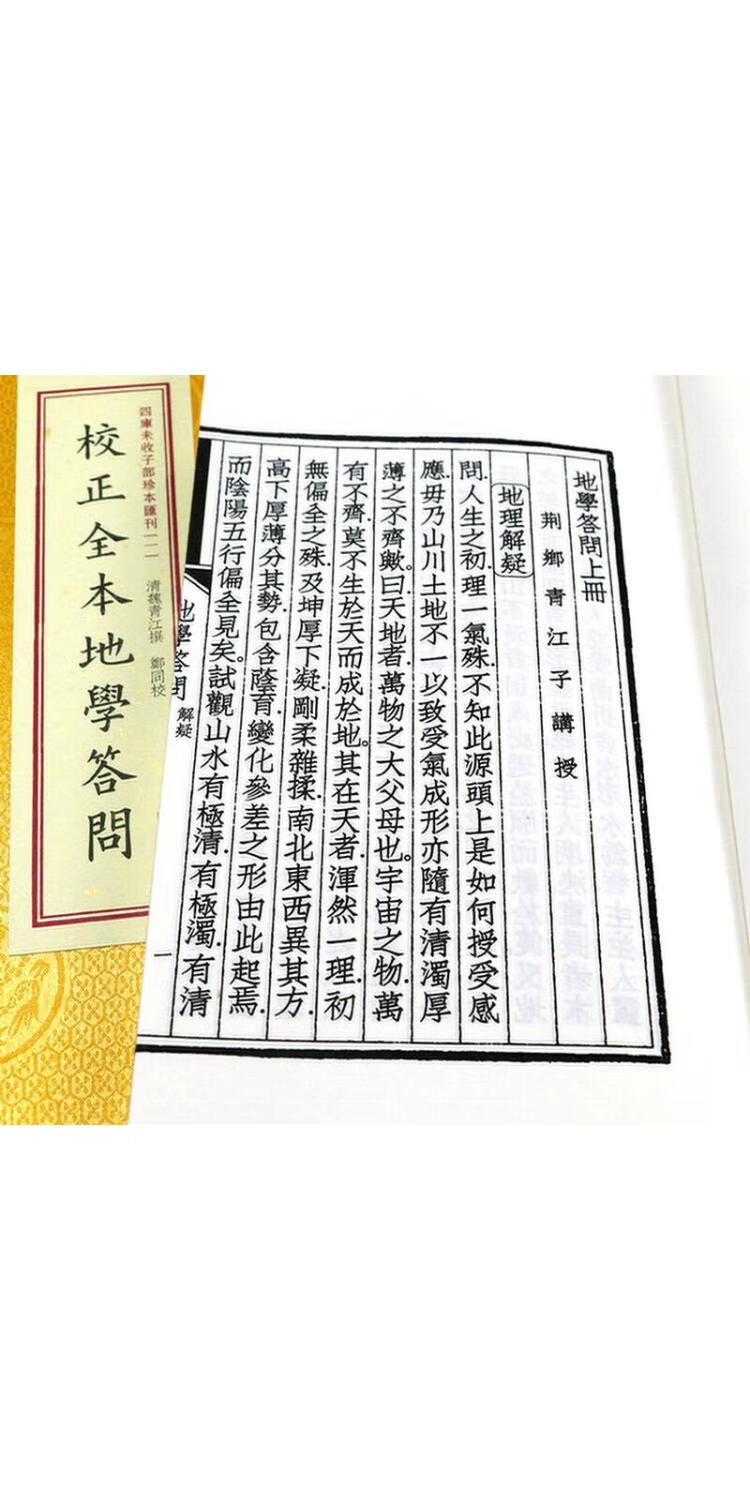 地學答問上冊
荆鄉青江子講授
地理解疑
問.人生之初.理一氣殊.不知此源頭上是如何授受感
應.毋乃山川土地不一以致受氣成形亦隨有清濁厚
薄之不齊歟。曰天地者.萬物之大父母也。宇宙之物.萬
有不齊.莫不生於天而成於地。其在天者.渾然一理.初
無偏全之殊.及坤厚下凝.剛柔雜揉.南北東西異其方.
高下厚薄分其勢.包含蔭育.變化參差之形由此起焉.
而陰陽五行偏全見矣.試觀山水有極清.有極濁.有清
地學答問 解疑
一
四庫未收子部珍本匯刊(一一)
校正全本地學答問
清魏青江撰 鄭同校